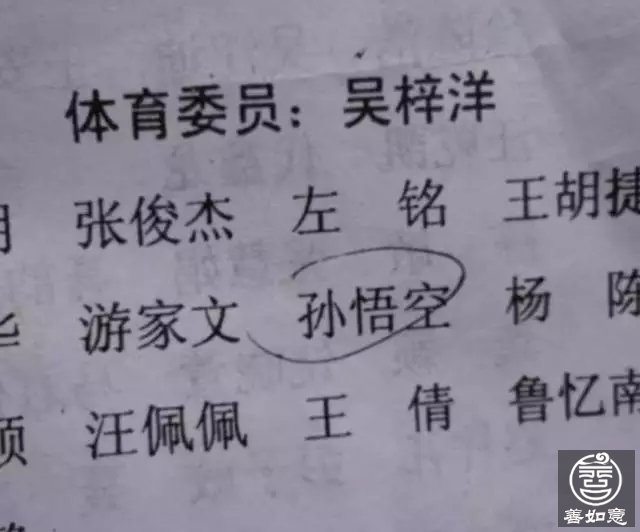 体育委员：吴梓洋
张俊杰 左 铭 王胡捷
游家文 孙悟空 杨 陈
汪佩佩 王 倩 鲁忆南
善如意